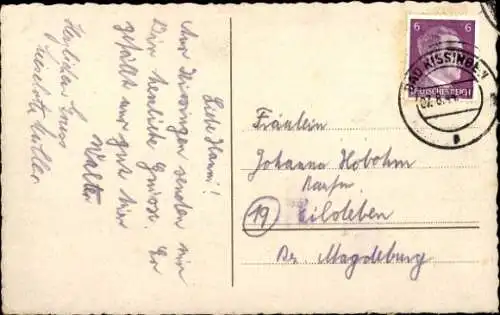 Liebe Hanni!
Aus Kissingen senden wir
Dir herzliche Grüsse. Es
gefällt uns gut hier
Walter
Herzlichen Gruss
Lieselotte Müller
6 6
DEUTSCHES REICH
BAD KISSINGEN
Fräulein
Johanna Hobohm
(19) Eilsleben
Bz. Magdeburg